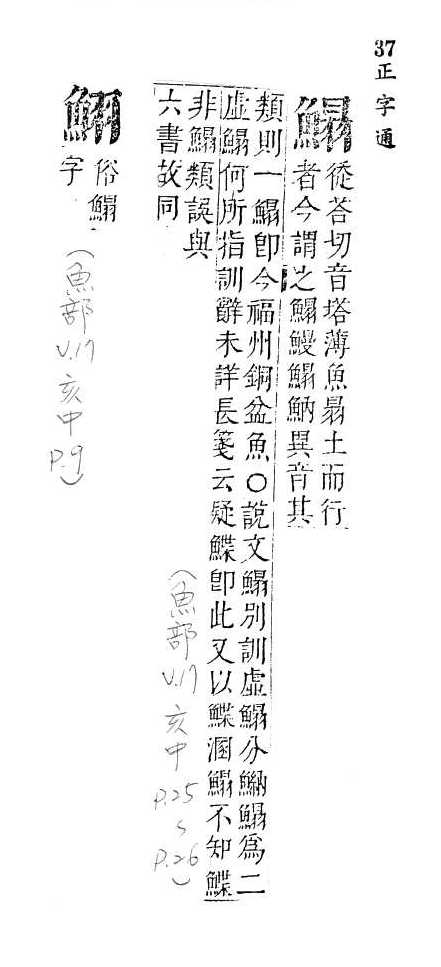 37正字通
鰨
從荅切音塔薄魚土而行
者今謂之鰨鰻鰨魶異音其
類則一鰨卽今福州銅盆魚○說文鰨別訓虛鰨分鰨爲二
虛鰨何所指訓辭未詳長箋云疑鰈卽此又以鰈溷鰨不知鰈
非鰨類誤與
六書故同
(魚部 V.17 亥中 P.25~P.26)
俗鰨
字
(魚部 V.17 亥中 P.9)